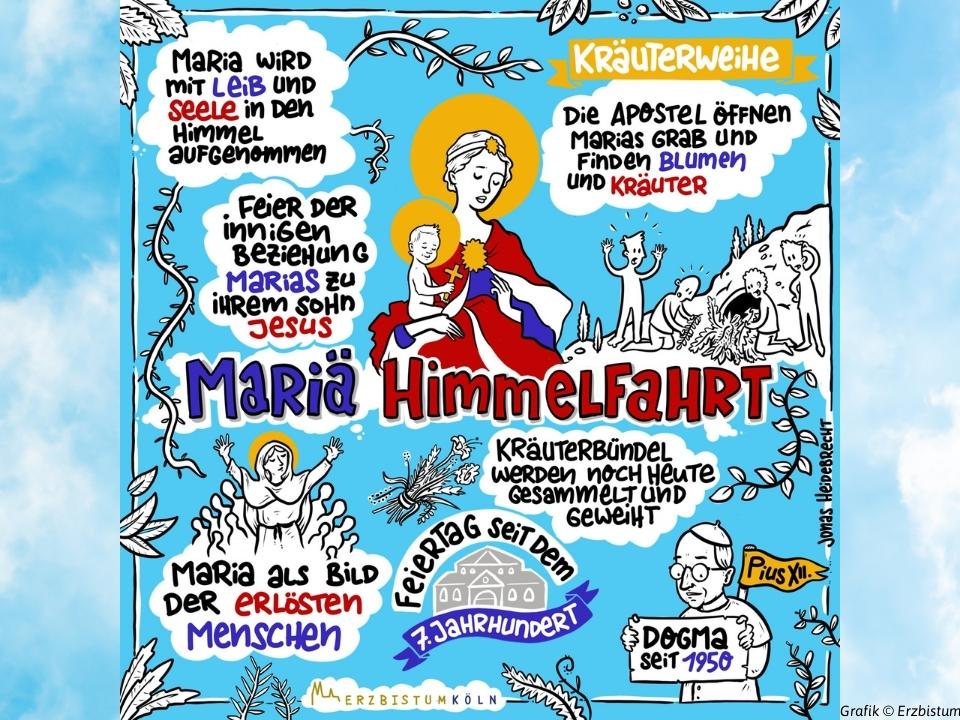 Maria wird
mit Leib und
Seele in den
Himmel
aufgenommen
Kräuterweihe
Die Apostel öffnen
Marias Grab und
finden Blumen
und Kräuter
Feier der
innigen
Beziehung
Marias zu
ihrem Sohn
Jesus
Mariä Himmelfahrt
Kräuterbündel
werden noch heute
gesammelt und
geweiht
Jonas Heidebrecht
Maria als Bild
der erlösten
Menschen
Feiertag seit dem
7. Jahrhundert
Pius XII.
Dogma
seit 1950
ERZBISTUMKÖLN
Grafik © Erzbistum